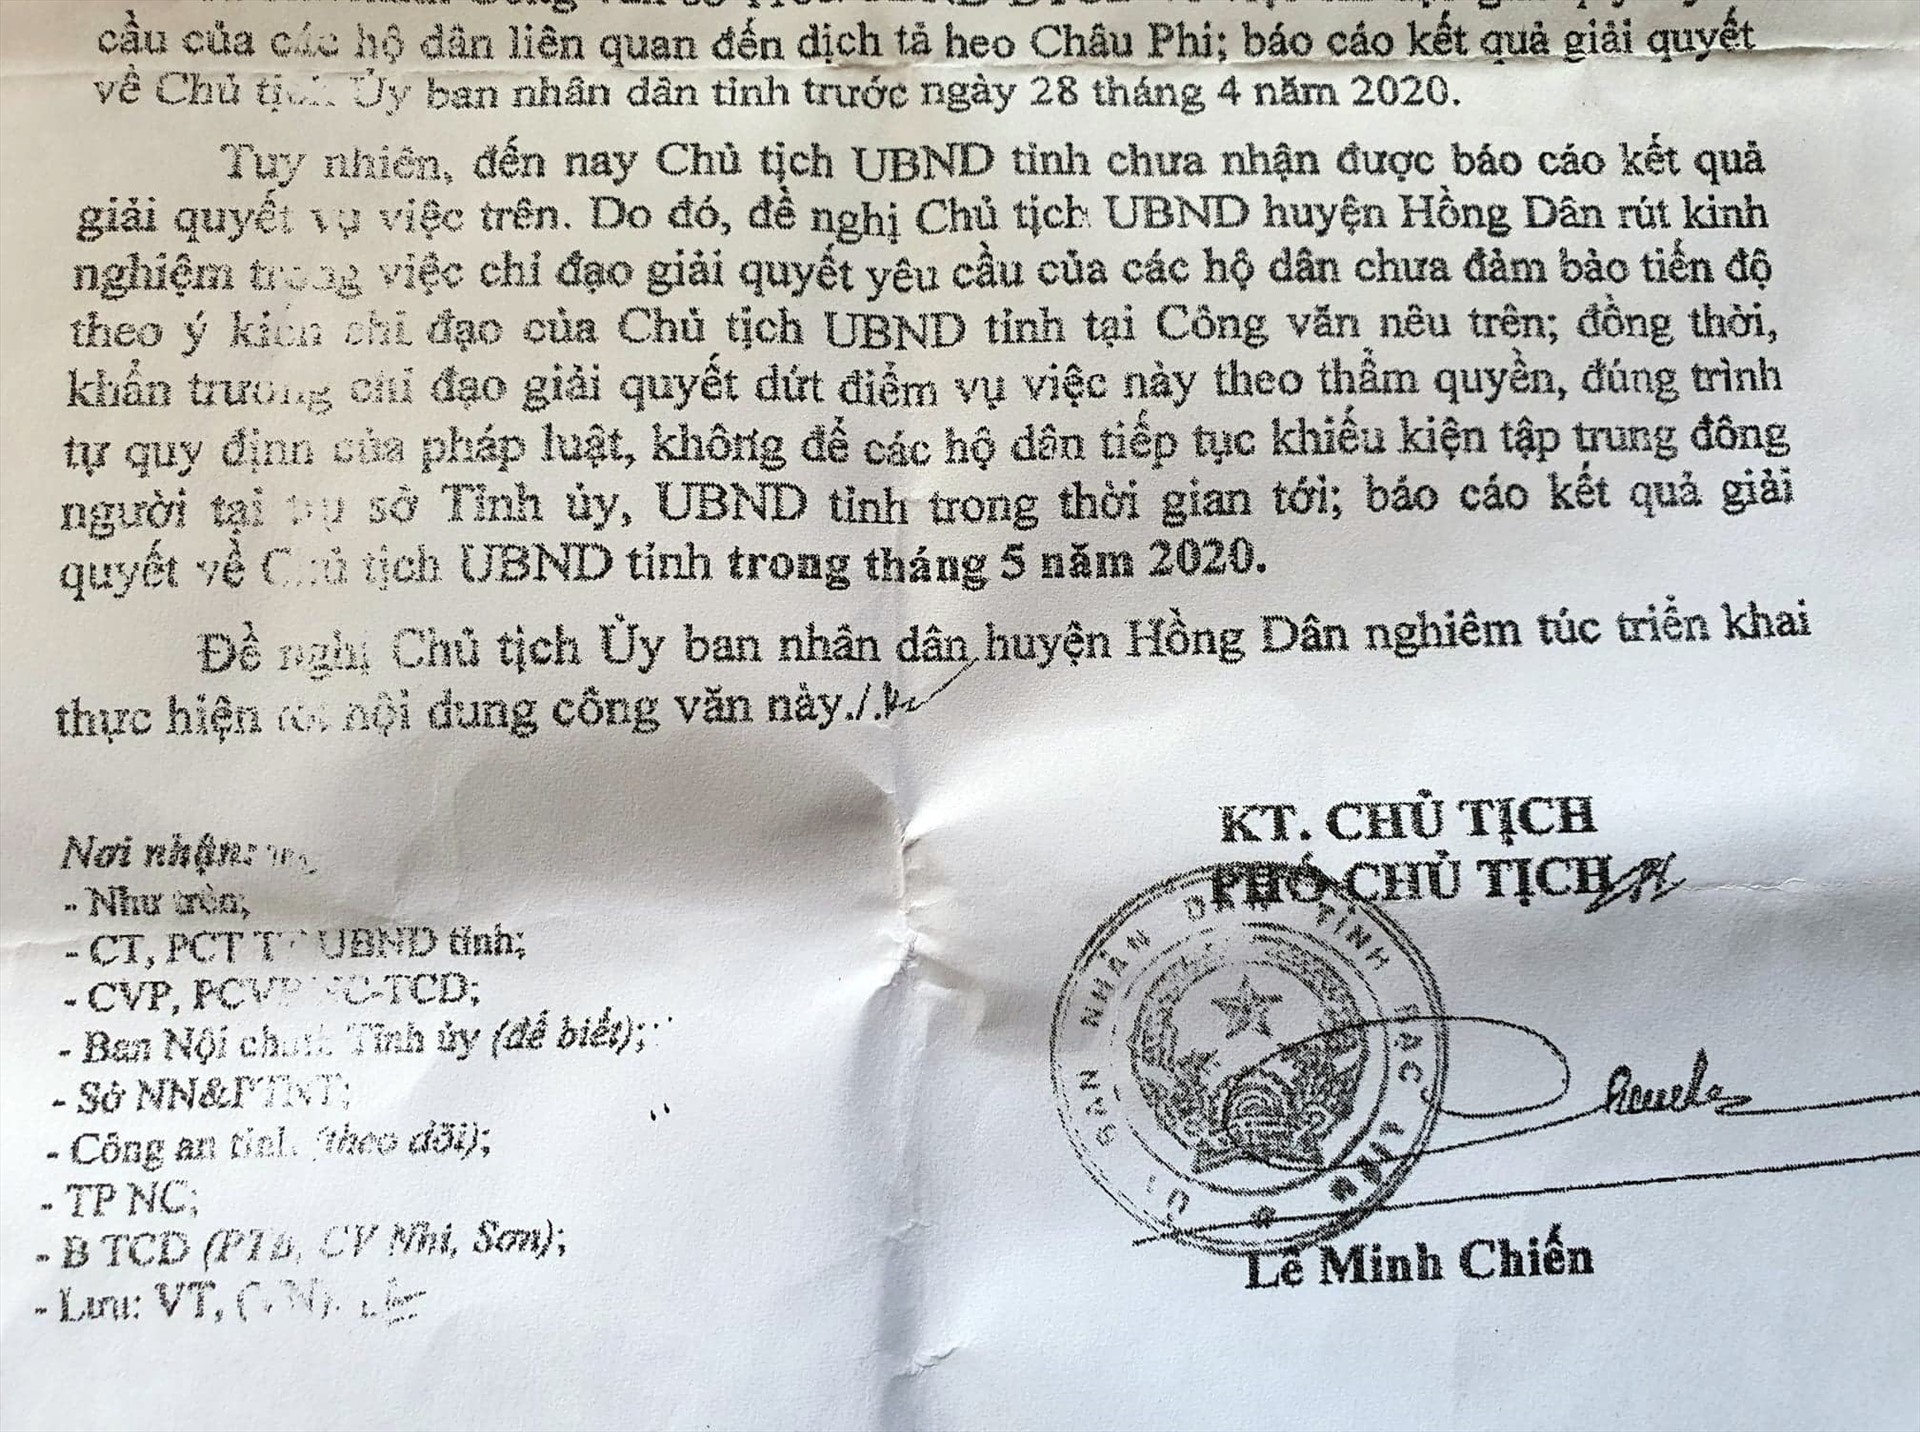 cầu của các hộ dân liên quan đến dịch tả heo Châu Phi; báo cáo kết quả giải quyết
về Chủ tịch Ủy ban nhân dân tỉnh trước ngày 28 tháng 4 năm 2020.
Tuy nhiên, đến nay Chủ tịch UBND tỉnh chưa nhận được báo cáo kết quả
giải quyết vụ việc trên. Do đó, đề nghị Chủ tịch UBND huyện Hồng Dân rút kinh
nghiệm trong việc chỉ đạo giải quyết yêu cầu của các hộ dân chưa đảm bảo tiến độ
theo ý kiến chỉ đạo của Chủ tịch UBND tỉnh tại Công văn nêu trên; đồng thời,
khẩn trương chỉ đạo giải quyết dứt điểm vụ việc này theo thẩm quyền, đúng trình
tự quy định của pháp luật, không để các hộ dân tiếp tục khiếu kiện tập trung đông
người tại trụ sở Tỉnh ủy, UBND tỉnh trong thời gian tới; báo cáo kết quả giải
quyết về Chủ tịch UBND tỉnh trong tháng 5 năm 2020.
Đề nghị Chủ tịch Ủy ban nhân dân huyện Hồng Dân nghiêm túc triển khai
thực hiện tốt nội dung công văn này./.
KT. CHỦ TỊCH
PHÓ CHỦ TỊCH
Nơi nhận:
- Như trên;
- CT, PCT UBND tỉnh;
- CVP, PCVP NC-TCD;
- Ban Nội chính Tỉnh ủy (để biết);
- Sở NN&PTNT;
- Công an tỉnh (theo dõi);
- TP NC;
- B TCD (PTB, CV Nhi, Sơn);
- Lưu: VT,
BAN NHÂN DÂN TỈNH BẠC LIÊU
Lê Minh Chiến